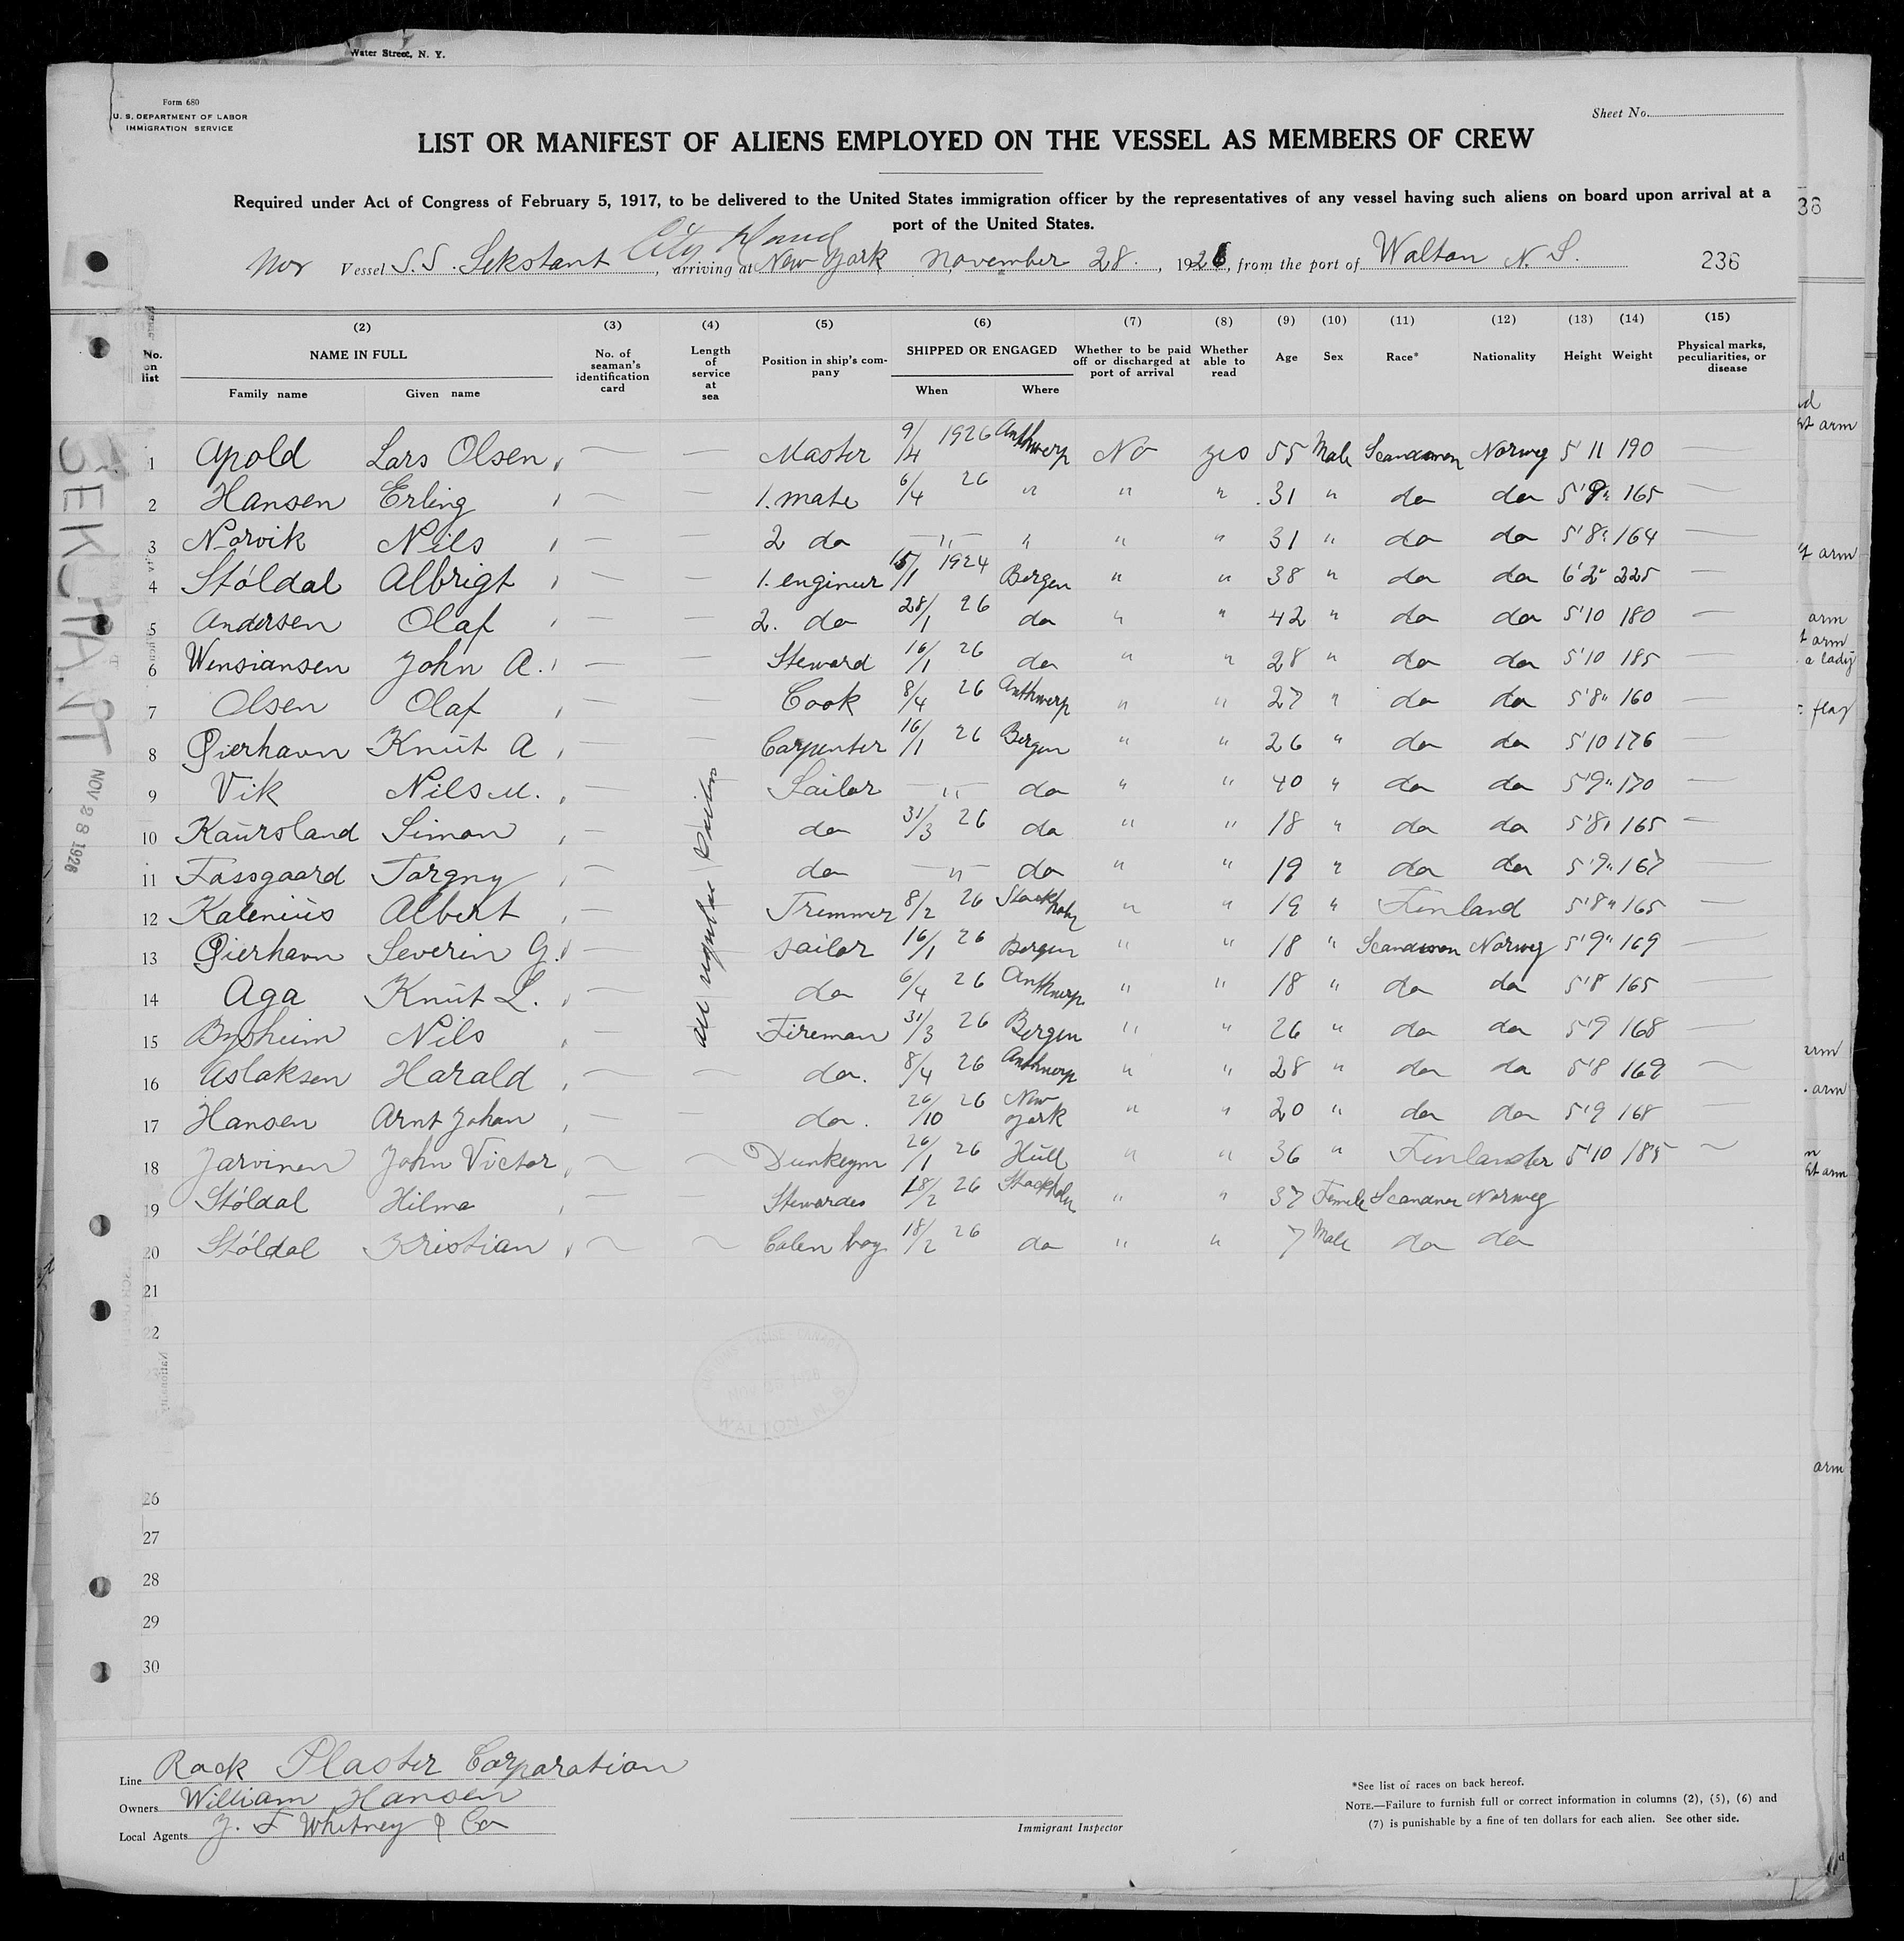 Water Street, N. Y.
Form 680
U. S. DEPARTMENT OF LABOR
IMMIGRATION SERVICE
Sheet No.
LIST OR MANIFEST OF ALIENS EMPLOYED ON THE VESSEL AS MEMBERS OF CREW
Required under Act of Congress of February 5, 1917, to be delivered to the United States immigration officer by the representatives of any vessel having such aliens on board upon arrival at a
port of the United States.
36
City Island
Nor Vessel S.S. Sekstant, arriving at New York November 28., 1926, from the port of Walton N.S. 236
(2) (3) (4) (5) (6) (7) (8) (9) (10) (11) (12) (13) (14) (15)
No. on list NAME IN FULL Family name Given name No. of seaman's identification card Length of service at sea Position in ship's company SHIPPED OR ENGAGED When Where Whether to be paid off or discharged at port of arrival Whether able to read Age Sex Race* Nationality Height Weight Physical marks, peculiarities, or disease
1 Apold Lars Olsen — — Master 9/4 1926 Anthwerp No yes 55 Male Norweg 5 11 190 —
2 Hansen Erling — — 1. mate 6/4 26 " " " 31 " do do 5'9" 165 —
3 Norvik Nils — — 2 do —"— " " " 31 " do do 5'8" 164 —
4 Stóldal Albrigt — — 1. engineer 15/1 1924 Bergen " " 38 " do do 6'2" 225 —
5 Andersen Olaf — — 2. do 28/1 26 do " " 42 " do do 5'10 180 —
6 Wensiansen John A. — — Steward 16/1 26 do " " 28 " do do 5'10 185 —
7 Olsen Olaf — — Cook 8/4 26 Anthwerp " " 27 " do do 5'8" 160 —
8 Knut A — — Carpenter 16/1 26 Bergen " " 26 " do do 5'10 176 —
9 Vik Nils M. — Sailor —"— do " " 40 " do do 5'9" 170 —
10 Kaursland Simon — do 31/3 26 do " " 18 " do do 5'8" 165 —
11 Fassgaard Torgny — do —"— do " " 19 " do do 5'9" 167 —
12 Kalenius Albert — Tremmer 8/2 26 Stockholm " " 19 " Finland 5'8" 165 —
13 Severin G. — sailor 16/1 26 Bergen " " 18 " Norweg 5'9" 169 —
14 Aga Knut L. — do 6/4 26 Anthwerp " " 18 " do do 5'8 165 —
15 Nils — Fireman 31/3 26 Bergen " " 26 " do do 5'9 168 —
16 Aslaksen Harald — — do. 8/4 26 Anthwerp " " 28 " do do 5'8 169 —
17 Hansen Arnt Johan — — do. 26/10 26 New York " " 20 " do do 5'9 168 —
18 Jarvinen John Victor — — Dunkeym 26/1 26 Hull " " 36 " Finlander 5'10 185 —
19 Stóldal Hilma — — Stewardes 18/2 26 Stockholm " " 37 Female Norweg
20 Stóldal Kristian — — boy 18/2 26 do " " 7 Male do do
all regular Sailors
21
22
26
27
28
29
30
SEKSTANT
NOV 28 1926
WALTON, N. S.
arm
arm
arm
arm
a lady
flag
arm
arm
arm
arm
Line Rock Plaster Corporation
Owners William Hansen
Local Agents J. F Whitney & Co
Immigrant Inspector
*See list of races on back hereof.
NOTE.—Failure to furnish full or correct information in columns (2), (5), (6) and
(7) is punishable by a fine of ten dollars for each alien. See other side.